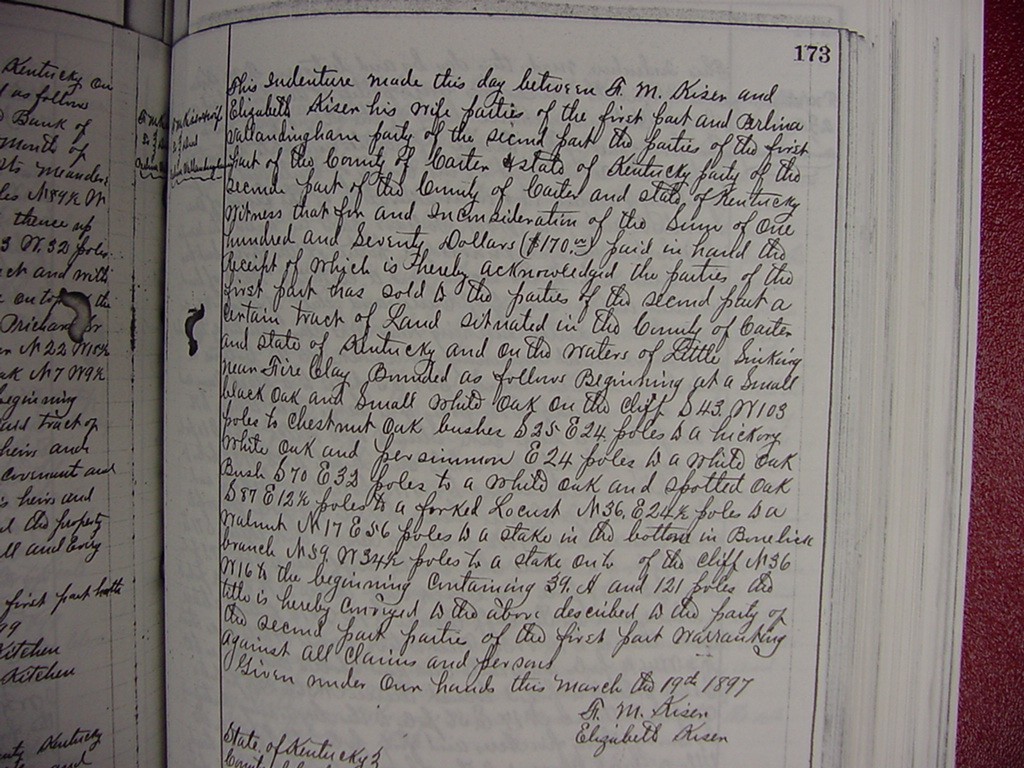 173
This Indenture made this day between F. M. Kiser and
Elizabeth Kiser his wife parties of the first part and Berlina
Vallandingham party of the second part the parties of the first
part of the County of Carter & state of Kentucky party of the
second part of the County of Carter and state of Kentucky
Witness that for and Inconsideration of the Sum of One
hundred and Seventy Dollars ($170.00) paid in hand the
receipt of which is hereby acknowledged the parties of the
first part has sold to the parties of the second part a
certain tract of Land situated in the County of Carter
and state of Kentucky and on the waters of Little Sinking
near Fire Clay Bounded as follows Beginning at a Small
black Oak and Small White Oak on the Cliff S 43. W 103
poles to Chestnut Oak bushes S 25 E 24 poles to a hickory
White Oak and persimmon E 24 poles to a White Oak
Bush S 70 E 32 poles to a White Oak and Spotted Oak
S 87 E 12½ poles to a forked Locust N 36. E 24½ poles to a
Walnut N 17 E 56 poles to a stake in the bottom in Bonelick
branch N 59. W 34½ poles to a stake onto of the Cliff N 36
W 16 to the beginning Containing 39. A and 121 poles the
title is hereby Conveyed to the above described to the party of
the second part parties of the first part Warranting
against all Claims and persons
Given under Our hands this March the 19th 1897
F. M. Kiser
Elizabeth Kiser
State of Kentucky
Kentucky on
d as follow
Bank of
month of
meanders
les N 84½ W
thence up
3 W. 32 poles
and with
on top the
N 22 W
oak N 7 W 9½
beginning
said tract of
heirs and
Covenant and
is heirs and
the property
all and Every
first part hath
Kitchen
Kitchen
Kentucky
and